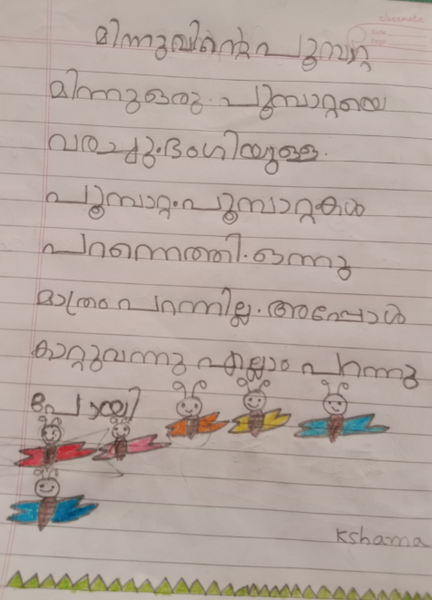 മിന്നുവിന്റെ പൂമ്പാറ്റ
മിന്നു ഒരു പൂമ്പാറ്റയെ
വരച്ചു. ഭംഗിയുള്ള.
പൂമ്പാറ്റ. പൂമ്പാറ്റകൾ
പറന്നെത്തി. ഒന്നു
മാത്രം പറന്നില്ല. അപ്പോൾ
കാറ്റുവന്നു എല്ലാം പറന്നു
പോയി
kshama